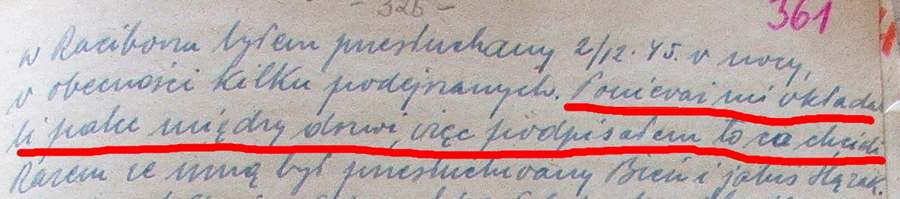 - 326 -
361
w Raciborzu byłem przesłuchany 2/12.45. w nocy,
w obecności kilku podejrzanych. Ponieważ mi wkłada
li palce między drzwi, więc podpisałem to co chcieli
Razem ze mną był przesłuchiwany Bień i jakiś